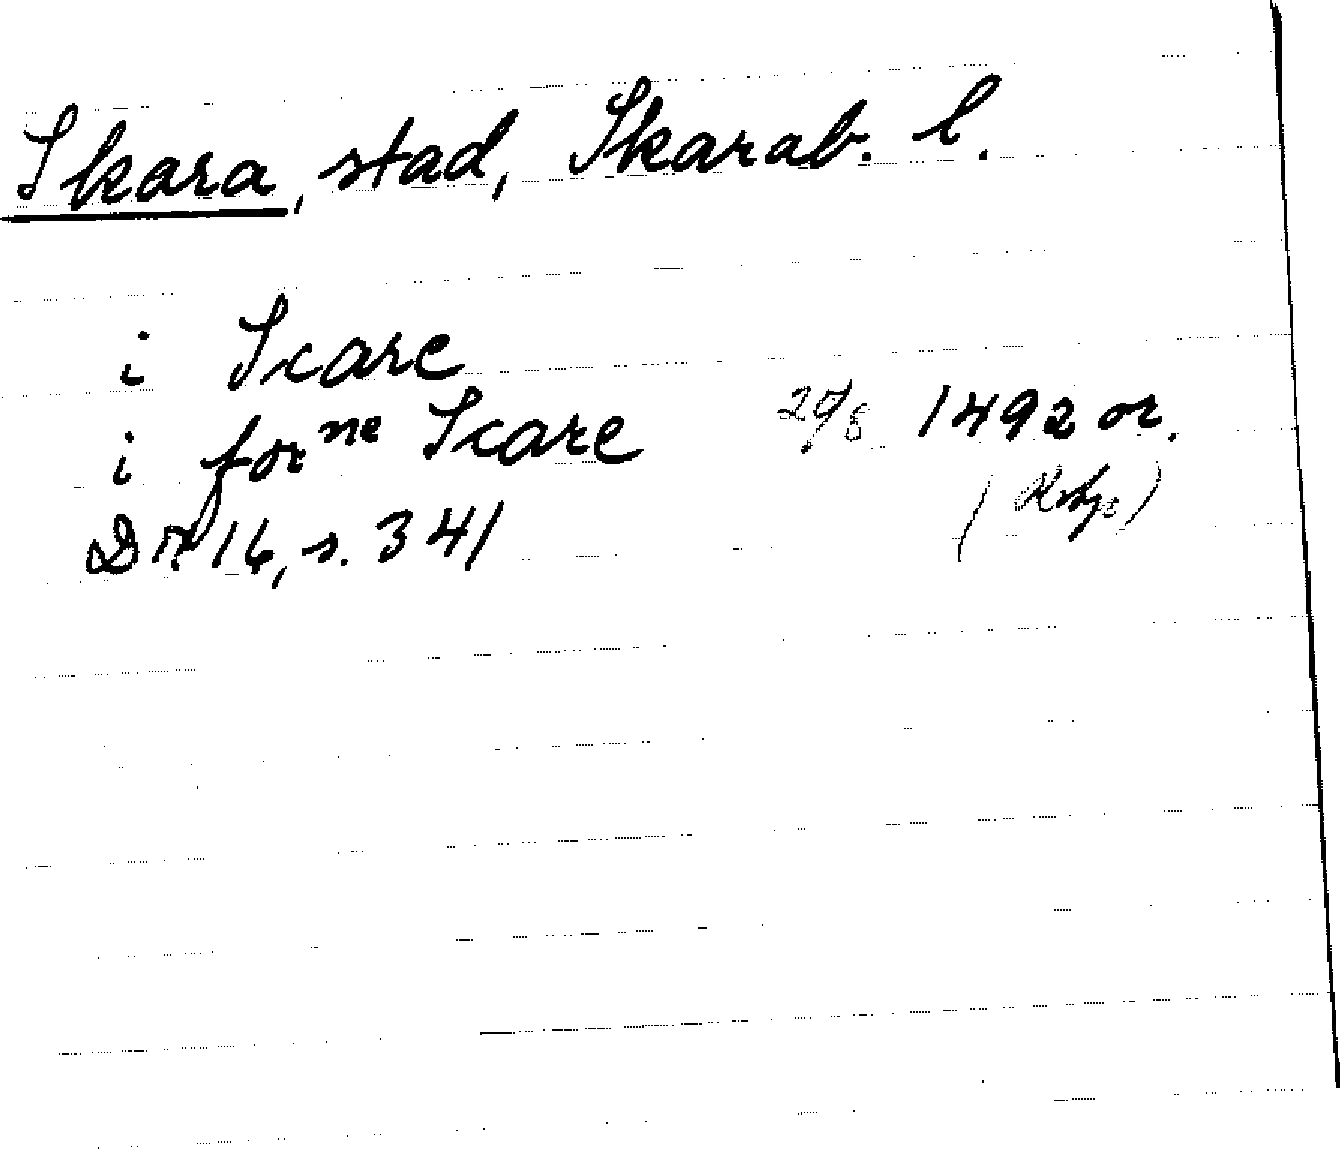 Skara, stad, Skarab. l.
i Scare
i forⁿᵉ Scare 29/8 1492 or.
DN 16, s. 341